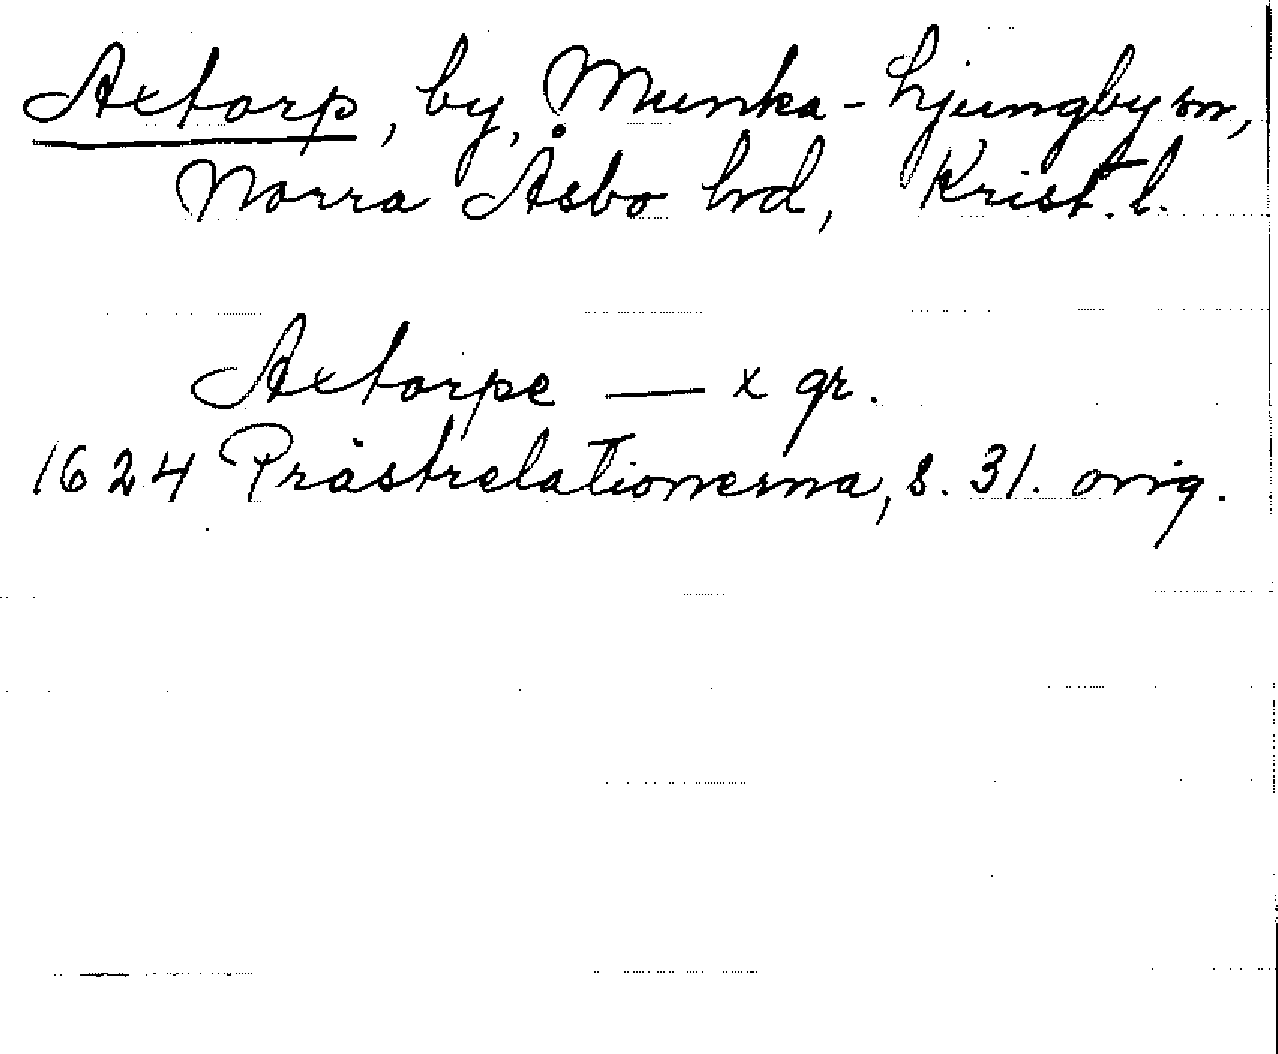 Axtorp, by, Munka-Ljungby sn,
Norra Åsbo hrd, Krist. l.
Axtorpe — x gr.
1624 Prästrelationerna, s. 31. orig.